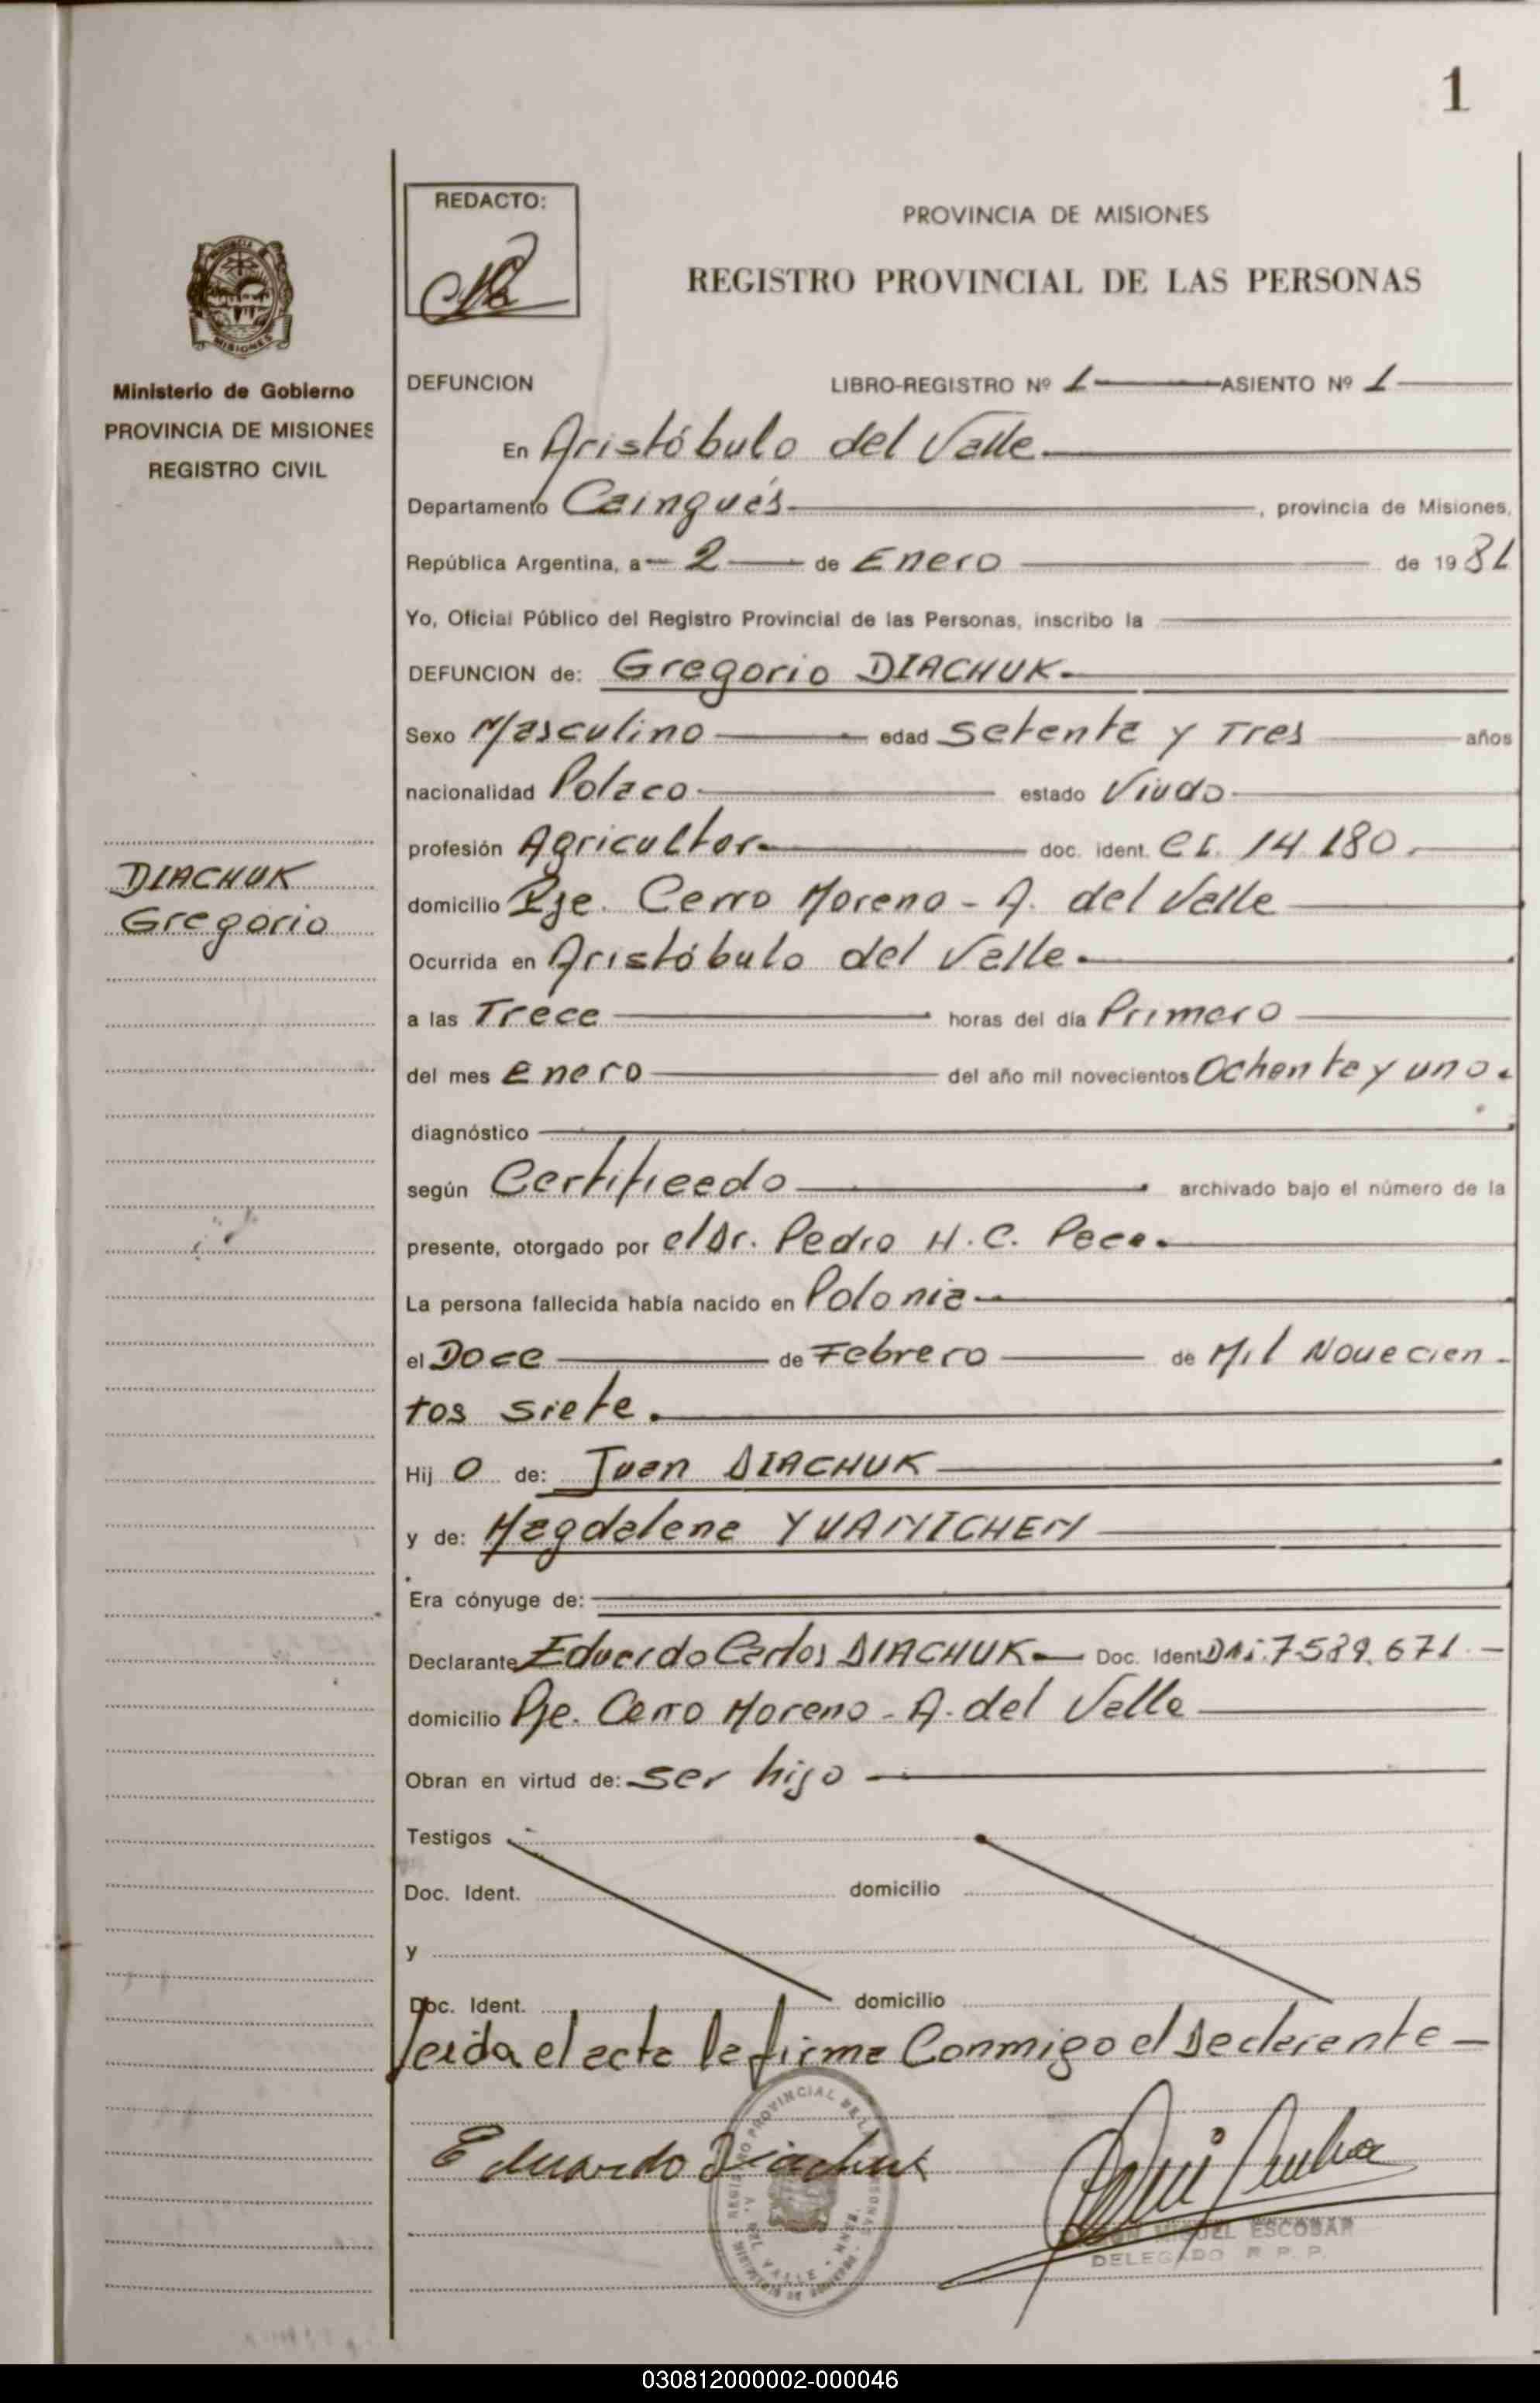 1
REDACTO:
PROVINCIA DE MISIONES
REGISTRO PROVINCIAL DE LAS PERSONAS
Ministerio de Gobierno
PROVINCIA DE MISIONES
REGISTRO CIVIL
DEFUNCION LIBRO-REGISTRO Nº 1 ASIENTO Nº 1
En Aristóbulo del Valle
Departamento Cainguás, provincia de Misiones,
República Argentina, a 2 de Enero de 1981
Yo, Oficial Público del Registro Provincial de las Personas, inscribo la
DEFUNCION de: Gregorio DIACHUK
Sexo Masculino edad setenta y Tres años
nacionalidad Polaco estado Viudo
profesión Agricultor doc. ident. CI. 14180
DIACHUK
Gregorio
domicilio Pje. Cerro Moreno - A. del Valle
Ocurrida en Aristóbulo del Valle
a las Trece horas del día Primero
del mes Enero del año mil novecientos Ochenta y uno.
diagnóstico
según Certificado archivado bajo el número de la
presente, otorgado por el Dr. Pedro H. C.
La persona fallecida había nacido en Polonia
el Doce de Febrero de Mil Novecien-
tos siete.
Hij o de: Juan DIACHUK
y de: Magdalena YUANICHEN
Era cónyuge de:
Declarante Eduardo Carlos DIACHUK Doc. Ident DNI. 7.589.671
domicilio Pje. Cerro Moreno - A. del Valle
Obran en virtud de: ser hijo
Testigos
Doc. Ident. domicilio
y
Doc. Ident. domicilio
leida el acta la firma Conmigo el Declarante
Eduardo Diachuk
MIGUEL ESCOBAR
DELEGADO R. P. P.
030812000002-000046